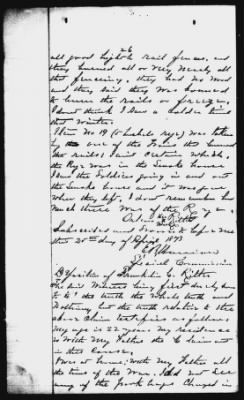 26
all good eight rail fences, and
they burned all or very nearly all
the fencing, they had no wood
and they said they was bound
to burn the rails or freeze,
I dont think I saw a soldier
that Winter.
Item No 19 (6 bushels rye) was taken
by one of the that burned
the rails, said
the Rye was in the Smoke house
I saw the Soldiers going in and out
the Smoke house and it was gone
when they left, I dont remember how
much there was of the Rye.
Ritter
mark
Subscribed and Sworn to before me
this 25th day of April 1873
Special Commissioner
Deposition of Franklin C. Ritter
The Said Witness being first duly Sworn
to t' the truth the Whole truth and
nothing but the truth relative to the
above claim testifies as follows
My age is 22 years. My residence
is With My Father the Claimant
in this Cause.
I was at home With my Father all
the time of the War. I did not see
any of the Stock hogs Charged in